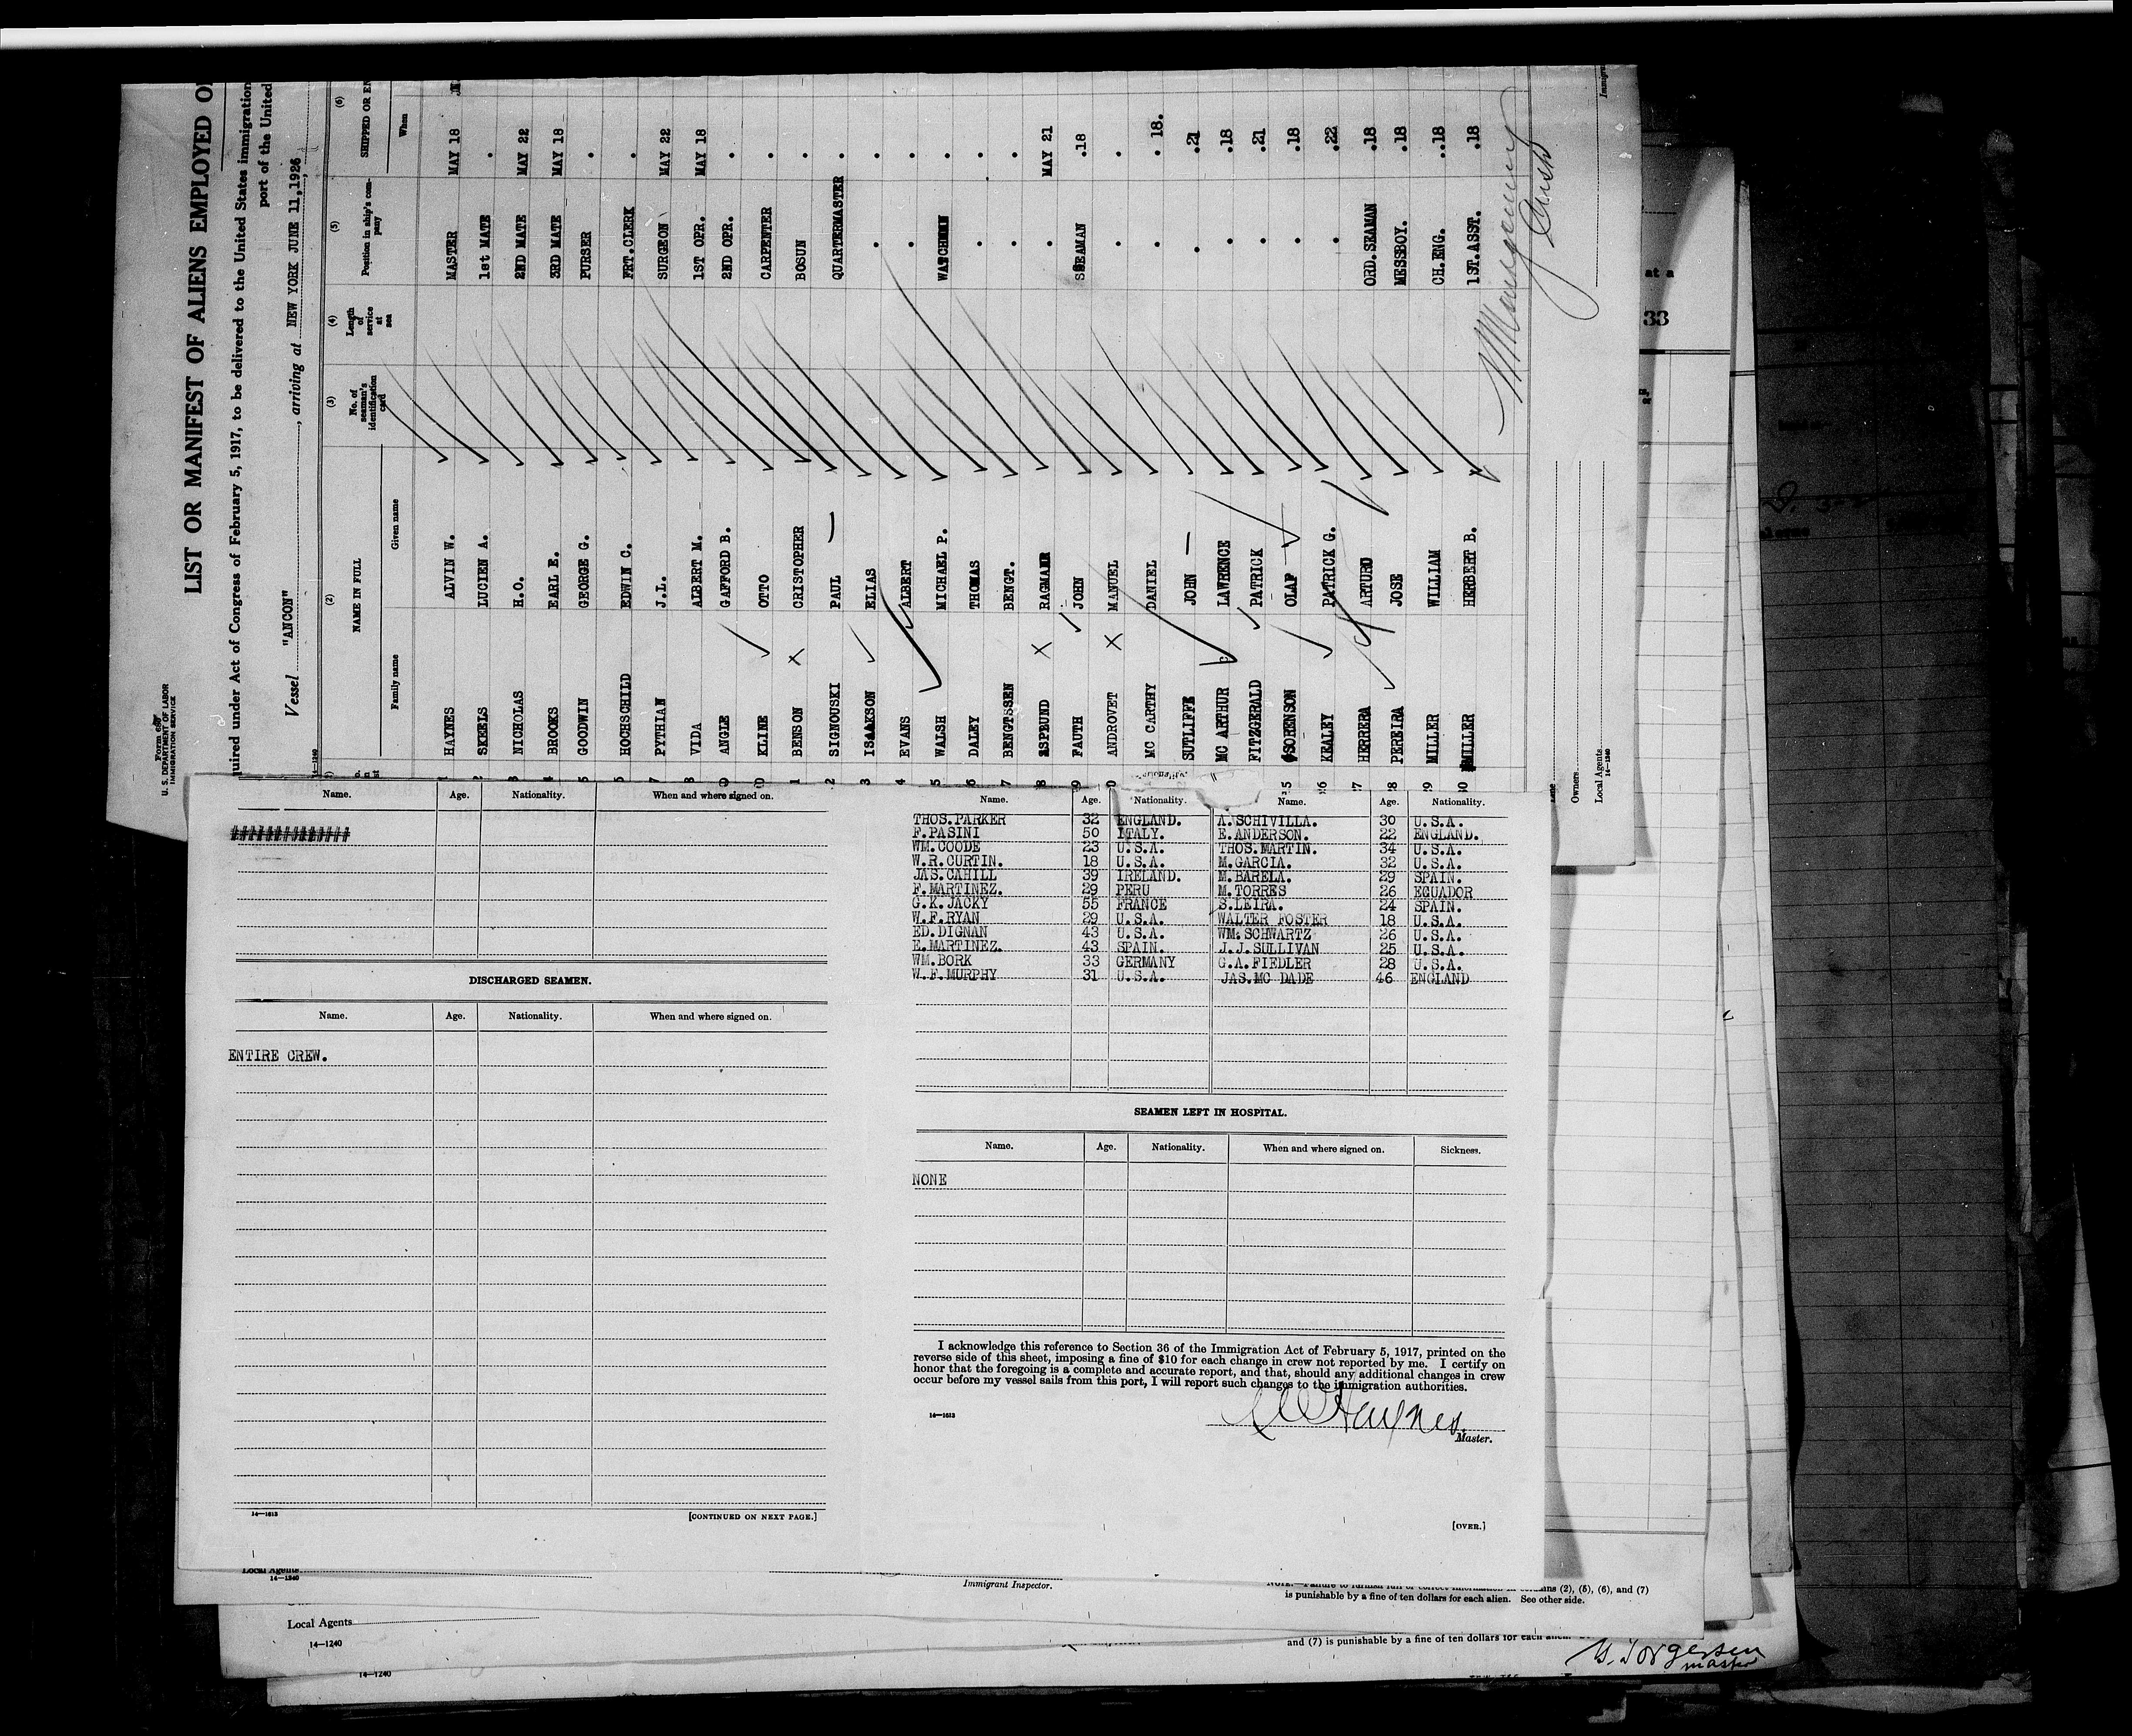 Form 680
U. S. DEPARTMENT OF LABOR
IMMIGRATION SERVICE
LIST OR MANIFEST OF ALIENS EMPLOYED O
quired under Act of Congress of February 5, 1917, to be delivered to the United States immigration
port of the United
Vessel "ANCON", arriving at NEW YORK JUNE 11,1926
14-1240
(2) (3) (4) (5) (6)
NAME IN FULL No. of seaman's identification card Length of service at sea Position in ship's company SHIPPED OR EN
Family name Given name When
1 HAYNES ALVIN W. MASTER MAY 18
2 SKEELS LUCIEN A. 1st MATE .
3 NICHOLAS H.O. 2ND MATE MAY 22
4 BROOKS EARL E. 3RD MATE MAY 18
5 GOODWIN GEORGE G. PURSER .
6 HOCHSCHILD EDWIN C. FRT.CLERK .
7 PYTHIAN J.L. SURGEON MAY 22
8 VIDA ALBERT M. 1ST OPR. MAY 18
9 ANGLE GAFFORD B. 2ND OPR. .
10 KLINE OTTO CARPENTER .
1 BENSON CRISTOPHER BOSUN .
2 SIGNOUSKI PAUL — QUARTERMASTER .
3 ISAAKSON ELIAS . .
4 EVANS ALBERT . .
5 WALSH MICHAEL P. WATCHMAN .
6 DALEY THOMAS . .
7 BENGTSSEN BENGT. . .
8 ASPEUND RAGMANR . MAY 21
9 FAUTH JOHN SEAMAN .18
0 ANDROVET MANUEL . .
MC CARTHY DANIEL . . 18.
SUTLIFFE JOHN — . .21
MC ARTHUR LAWRENCE . .18
FITZGERALD PATRICK . .21
25 SORENSON OLAF . .18
26 KEALEY PATRICK G. . .22
27 HERRERA ARTURO ORD.SEAMAN .18
28 PEREIRA JOSE MESSBOY. .18
29 MILLER WILLIAM CH.ENG. ..18
30 MILLER HERBERT B. 1ST.ASST. .18
Owners
Local Agents
14-1240
at a
33
Name. Age. Nationality. When and where signed on.
DISCHARGED SEAMEN.
Name. Age. Nationality. When and where signed on.
ENTIRE CREW.
14—1613
[CONTINUED ON NEXT PAGE.]
Name. Age. Nationality. Name. Age. Nationality.
THOS.PARKER 32 ENGLAND. A.SCHIVILLA. 30 U.S.A.
F.PASINI 50 ITALY. E.ANDERSON. 22 ENGLAND.
WM.COODE 23 U.S.A. THOS.MARTIN. 34 U.S.A.
W.R.CURTIN. 18 U.S.A. M.GARCIA. 32 U.S.A.
JAS.CAHILL 39 IRELAND. M.BARELA. 29 SPAIN.
F.MARTINEZ. 29 PERU M.TORRES 26 EGUADOR
G.K.JACKY 55 FRANCE S.LEIRA. 24 SPAIN.
W.F.RYAN 29 U.S.A. WALTER FOSTER 18 U.S.A.
ED.DIGNAN 43 U.S.A. WM.SCHWARTZ 26 U.S.A.
E.MARTINEZ. 43 SPAIN. J.J.SULLIVAN 25 U.S.A.
WM.BORK 33 GERMANY G.A.FIEDLER 28 U.S.A.
W.F.MURPHY 31 U.S.A. JAS.MC DADE 46 ENGLAND
SEAMEN LEFT IN HOSPITAL.
Name. Age. Nationality. When and where signed on. Sickness.
NONE
I acknowledge this reference to Section 36 of the Immigration Act of February 5, 1917, printed on the
reverse side of this sheet, imposing a fine of $10 for each change in crew not reported by me. I certify on
honor that the foregoing is a complete and accurate report, and that, should any additional changes in crew
occur before my vessel sails from this port, I will report such changes to the immigration authorities.
14—1613
A W Haynes.
Master.
[OVER.]
Local Agents
14—1240
Immigrant Inspector.
ns (2), (5), (6), and (7)
is punishable by a fine of ten dollars for each alien. See other side.
Local Agents
14—1240
and (7) is punishable by a fine of ten dollars for each alien.
Jorgensen
master
14—1240